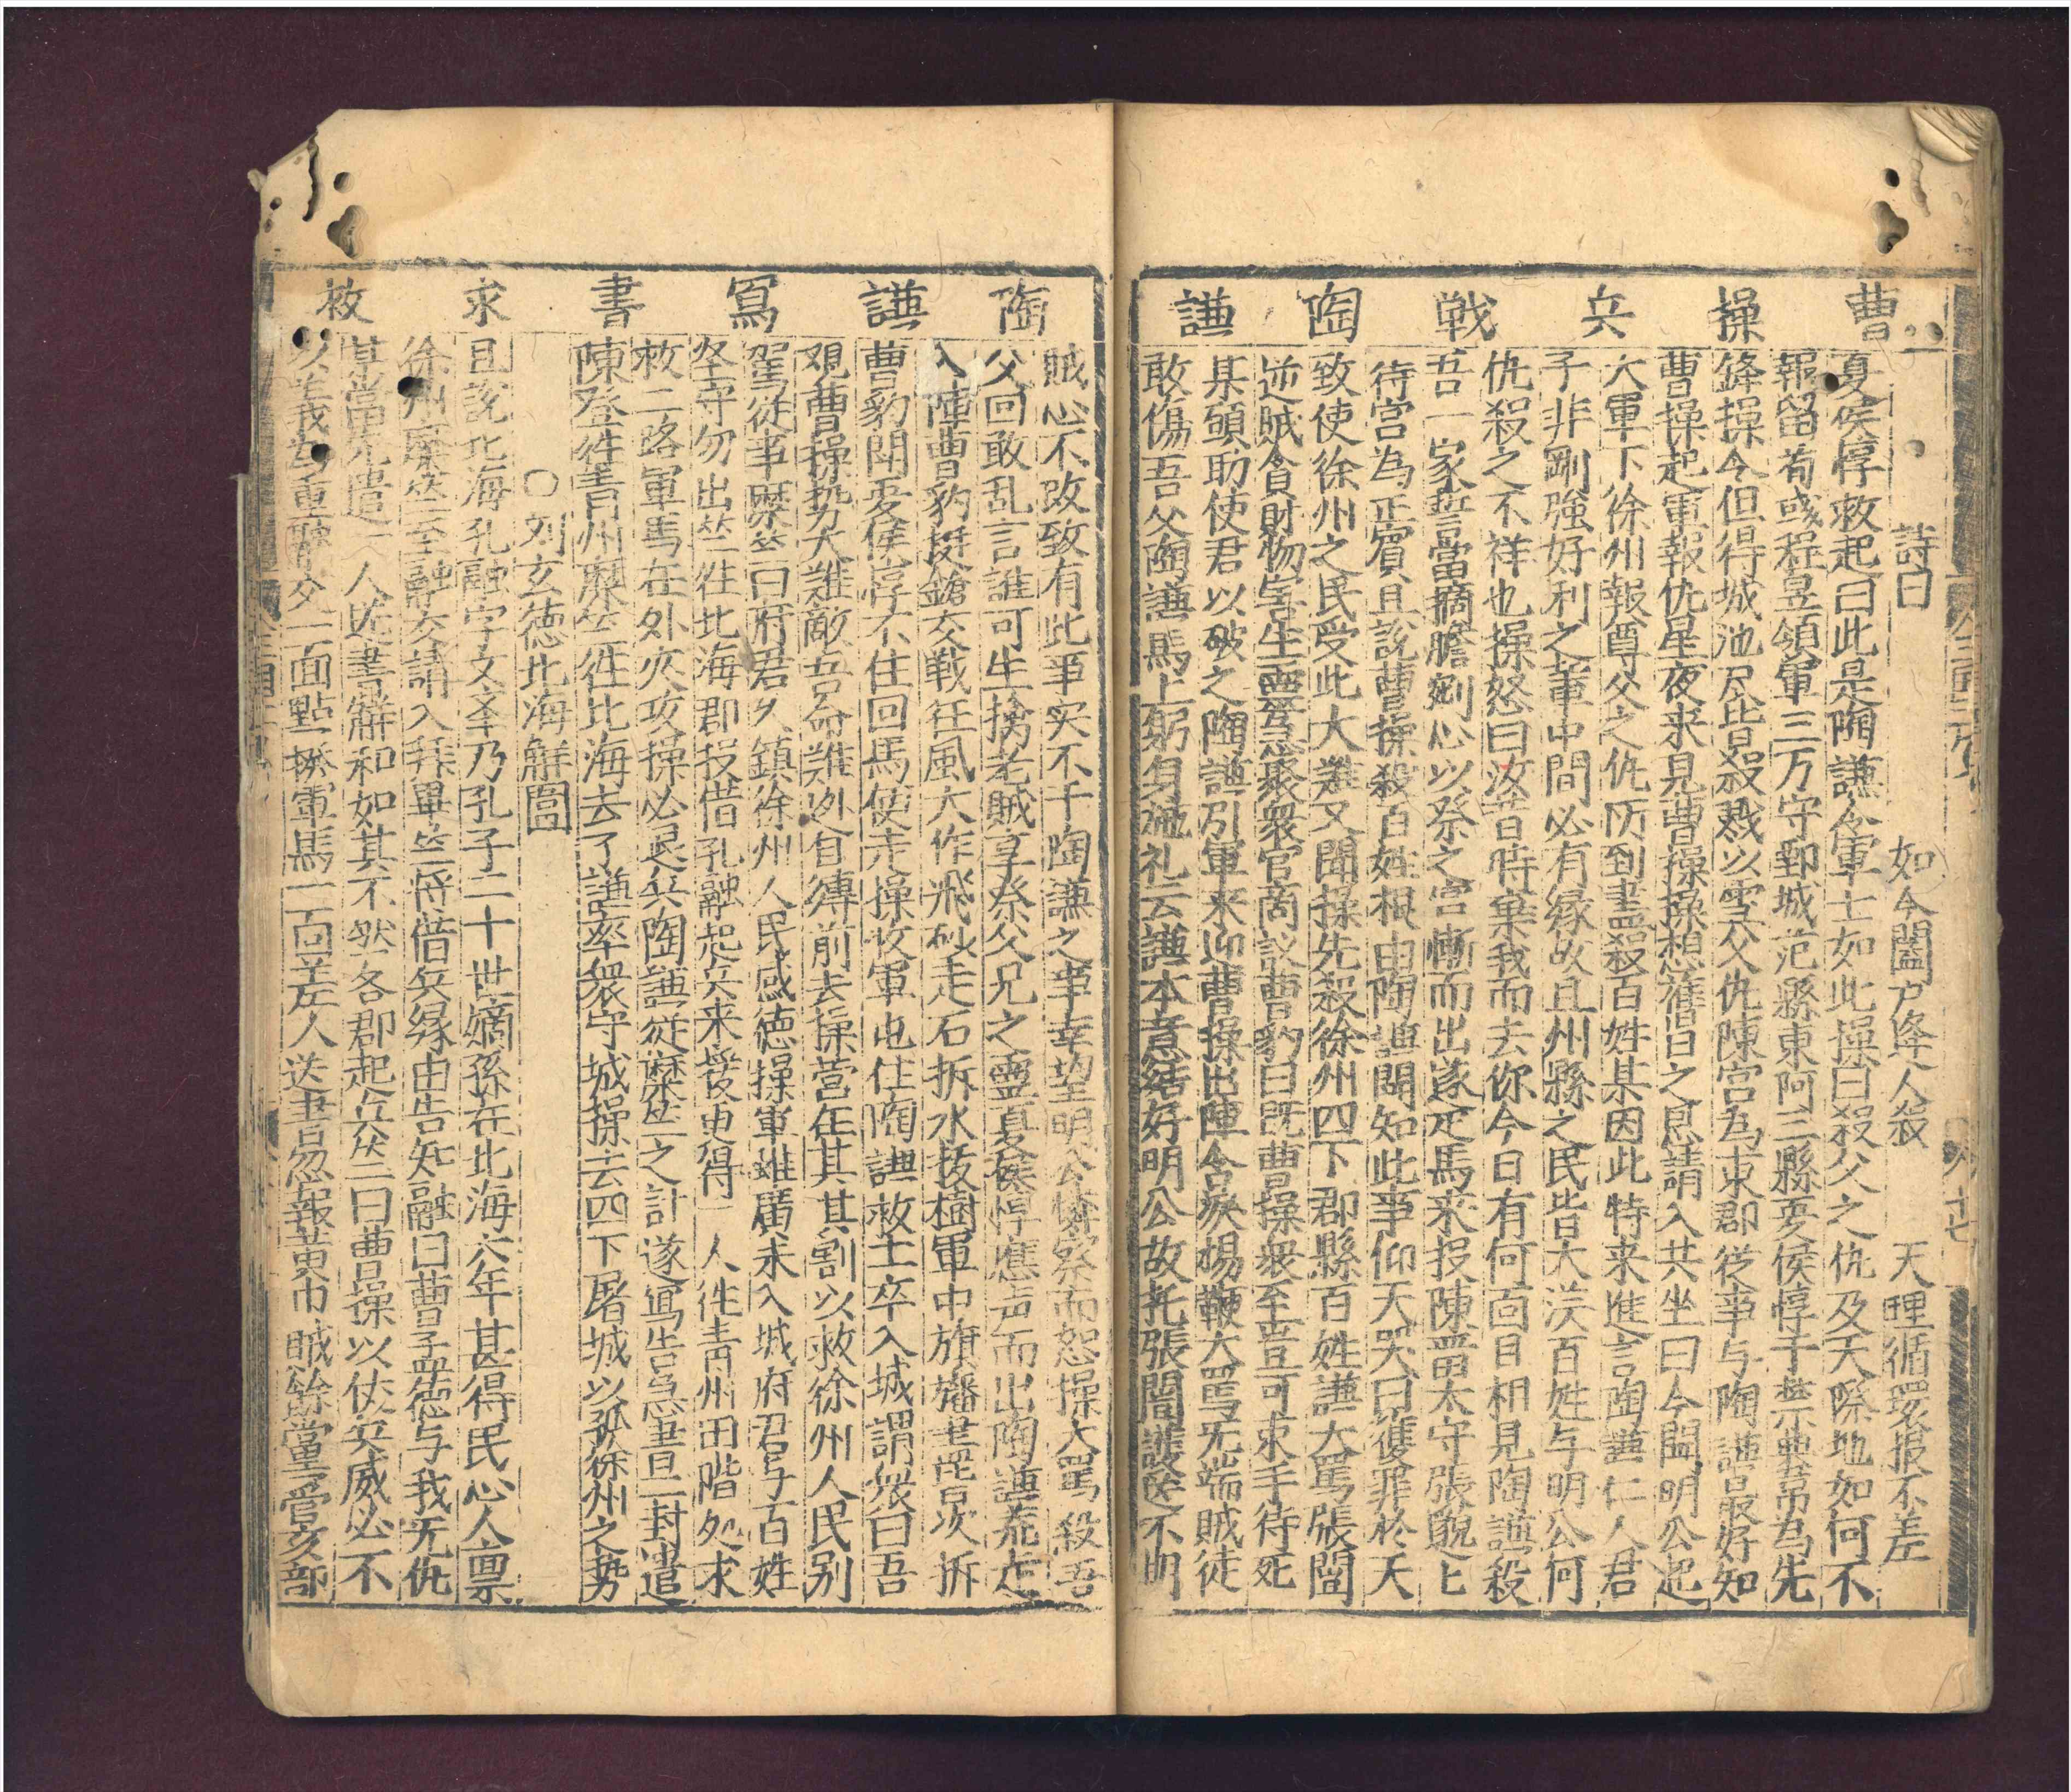 曹操兵戦陶謙
詩曰 如今闔户逢人殺 天理循環报不差
夏侯惇救起曰此是陶謙令軍士如此操曰殺父之仇及天際地如何不
報留荀彧程昱領軍三万守鄄城范縣東阿三縣夏侯惇于禁典韋為先
鋒操令但得城池尽皆殺戮以雪父仇陳宮為東郡従事与陶謙最好知
曹操起軍報仇星夜来見曹操操想舊日之恩請入共坐曰今聞明公起
大軍下徐州報尊父之仇所到盡殺百姓某因此特来進言陶謙仁人君
子非剛強好利之輩中間必有縁故且州縣之民皆大漢百姓与明公何
仇殺之不祥也操怒曰汝昔時棄我而去你今日有何面目相見陶謙殺
吾一家誓當摘膽剜心以祭之宮慚而出遂疋馬来投陳畱太守張邈匕
待宮為正賓且說曹操殺百姓根由陶謙聞知此事仰天哭曰獲罪於天
致使徐州之民受此大難又聞操先殺徐州四下郡縣百姓謙大罵張闓
逆賊貪財物害生靈急聚衆官商議曹豹曰既曹操衆至豈可求手待死
某願助使君以破之陶謙引軍来迎曹操出陣含淚揚鞭大罵无端賊徒
敢傷吾父陶謙馬上躬身施礼云謙本意結好明公故托張闓護送不期
陶謙寫書求救
賊心不改致有此事实不干陶謙之事幸望明公憐察而恕操大罵殺吾
父回敢乱言誰可生擒老賊享祭父兄之靈夏侯惇應声而出陶謙慌走
入陣曹豹挺鎗交戦狂風大作飛砂走石拆水拔樹軍中旗旛盡皆吹拆
曹豹閗夏侯惇不住回馬便走操收軍屯住陶謙救士卒入城謂衆曰吾
覌曹操势大難敵吾命難逃自縛前去操營任其其割以救徐州人民别
駕従事糜竺曰府君久鎮徐州人民感德操軍雖廣未入城府君与百姓
坚守勿出竺往北海郡投借孔融起兵来爰更得一人徃青州田階処求
救二路軍馬在外夾攻操必退兵陶謙従糜竺之計遂寫告急書二封遣
陳登徃青州糜竺徃北海去了謙率衆守城操去四下屠城以孤徐州之势
○刘玄德北海觧圍
且說北海孔融字文峯乃孔子二十世嫡孫在北海六年甚得民心人禀
徐州糜竺至融交請入拜畢竺將借兵縁由告知融曰曹孟德与我无仇
某當先遣一人脩書觧和如其不然各郡起兵竺曰曹操以仗兵威必不
以義為重融交一面點撥軍馬一面差人送書忽報黄巾賊餘黨管亥部